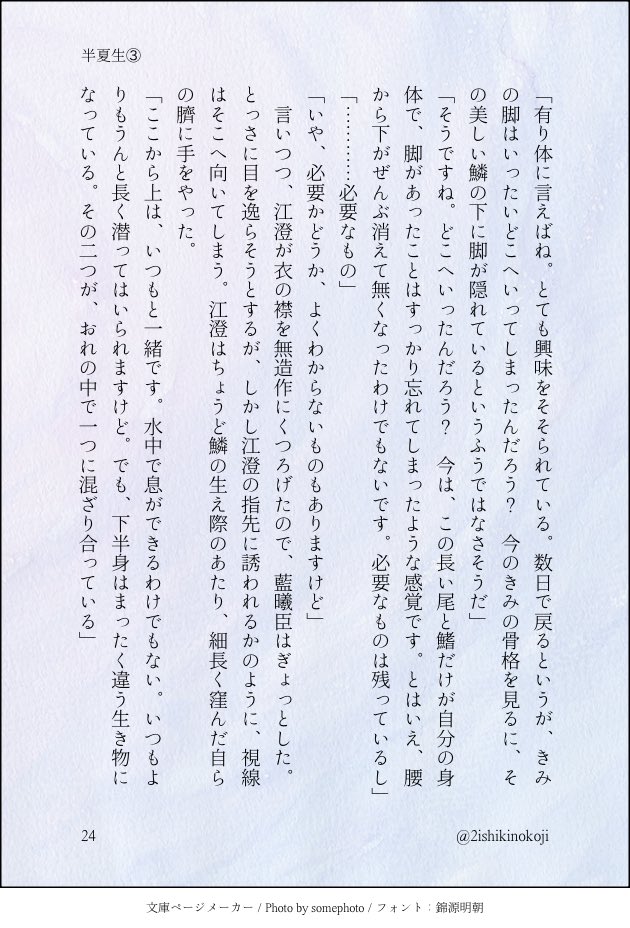 半夏生③
「有り体に言えばね。とても興味をそそられている。数日で戻るというが、きみ
の脚はいったいどこへいってしまったんだろう？　今のきみの骨格を見るに、そ
の美しい鱗の下に脚が隠れているというふうではなさそうだ」
「そうですね。どこへいったんだろう？　今は、この長い尾と鰭だけが自分の身
体で、脚があったことはすっかり忘れてしまったような感覚です。とはいえ、腰
から下がぜんぶ消えて無くなったわけでもないです。必要なものは残っているし」
「…………必要なもの」
「いや、必要かどうか、よくわからないものもありますけど」
　言いつつ、江澄が衣の襟を無造作にくつろげたので、藍曦臣はぎょっとした。
とっさに目を逸らそうとするが、しかし江澄の指先に誘われるかのように、視線
はそこへ向いてしまう。江澄はちょうど鱗の生え際のあたり、細長く窪んだ自ら
の臍に手をやった。
「ここから上は、いつもと一緒です。水中で息ができるわけでもない。いつもよ
りもうんと長く潜ってはいられますけど。でも、下半身はまったく違う生き物に
なっている。その二つが、おれの中で一つに混ざり合っている」
24
@2ishikinokoji
文庫ページメーカー / Photo by somephoto / フォント：錦源明朝